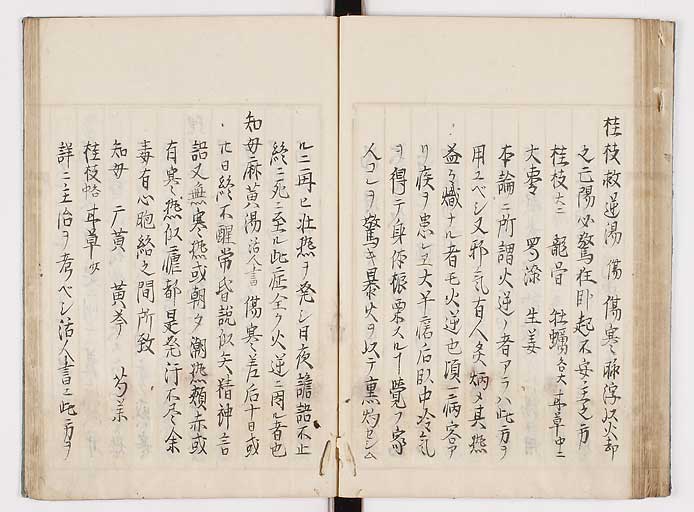 桂枝救逆湯 傷 傷寒脉浮以火却
之亡陽必驚狂臥起不安主之方
桂枝大二 龍骨 牡蠣各大 甘草中二
大棗 蜀漆 生姜
本論ニ所謂火逆ノ者アラハ此方ヲ
用ユベシ又邪気有人灸炳メ其熱
益々熾ナル者モ火逆也頃一病客ア
リ疾ヲ患シヱ大半癒后臥中冷気
ヲ得テ身体振栗スルヿ覚フ家
人コレヲ驚キ暴火ヲ以テ熏灼セシム
ルニ再ヒ壮熱ヲ発シ日夜譫語不止
終ニ死ニ至ル此症全ク火逆ニ因ル者也
知母麻黄湯 活人書 傷寒差后十日或
日終不醒常昏説似失精神言
語又無寒熱或朝夕潮熱頬赤或
有寒熱似瘧都是発汗不尽余
毒有心胞絡之間所致
知母 广黄 黄芩 芍薬
桂枝 甘草
詳ニ主治ヲ考ベシ活人書ニ此方ヲ